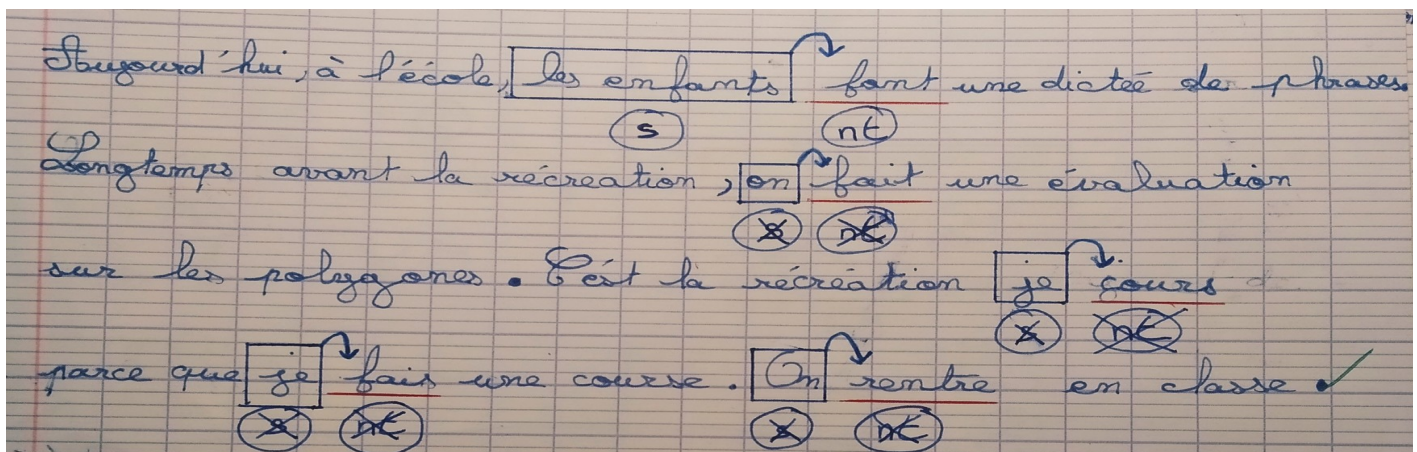 Aujourd'hui, à l'école, les enfants font une dictée de phrases.
s nt
Longtemps avant la récréation, on fait une évaluation
s nt
sur les polygones. C'est la récréation je cours
s nt
parce que je fais une course. On rentre en classe.
s nt s nt